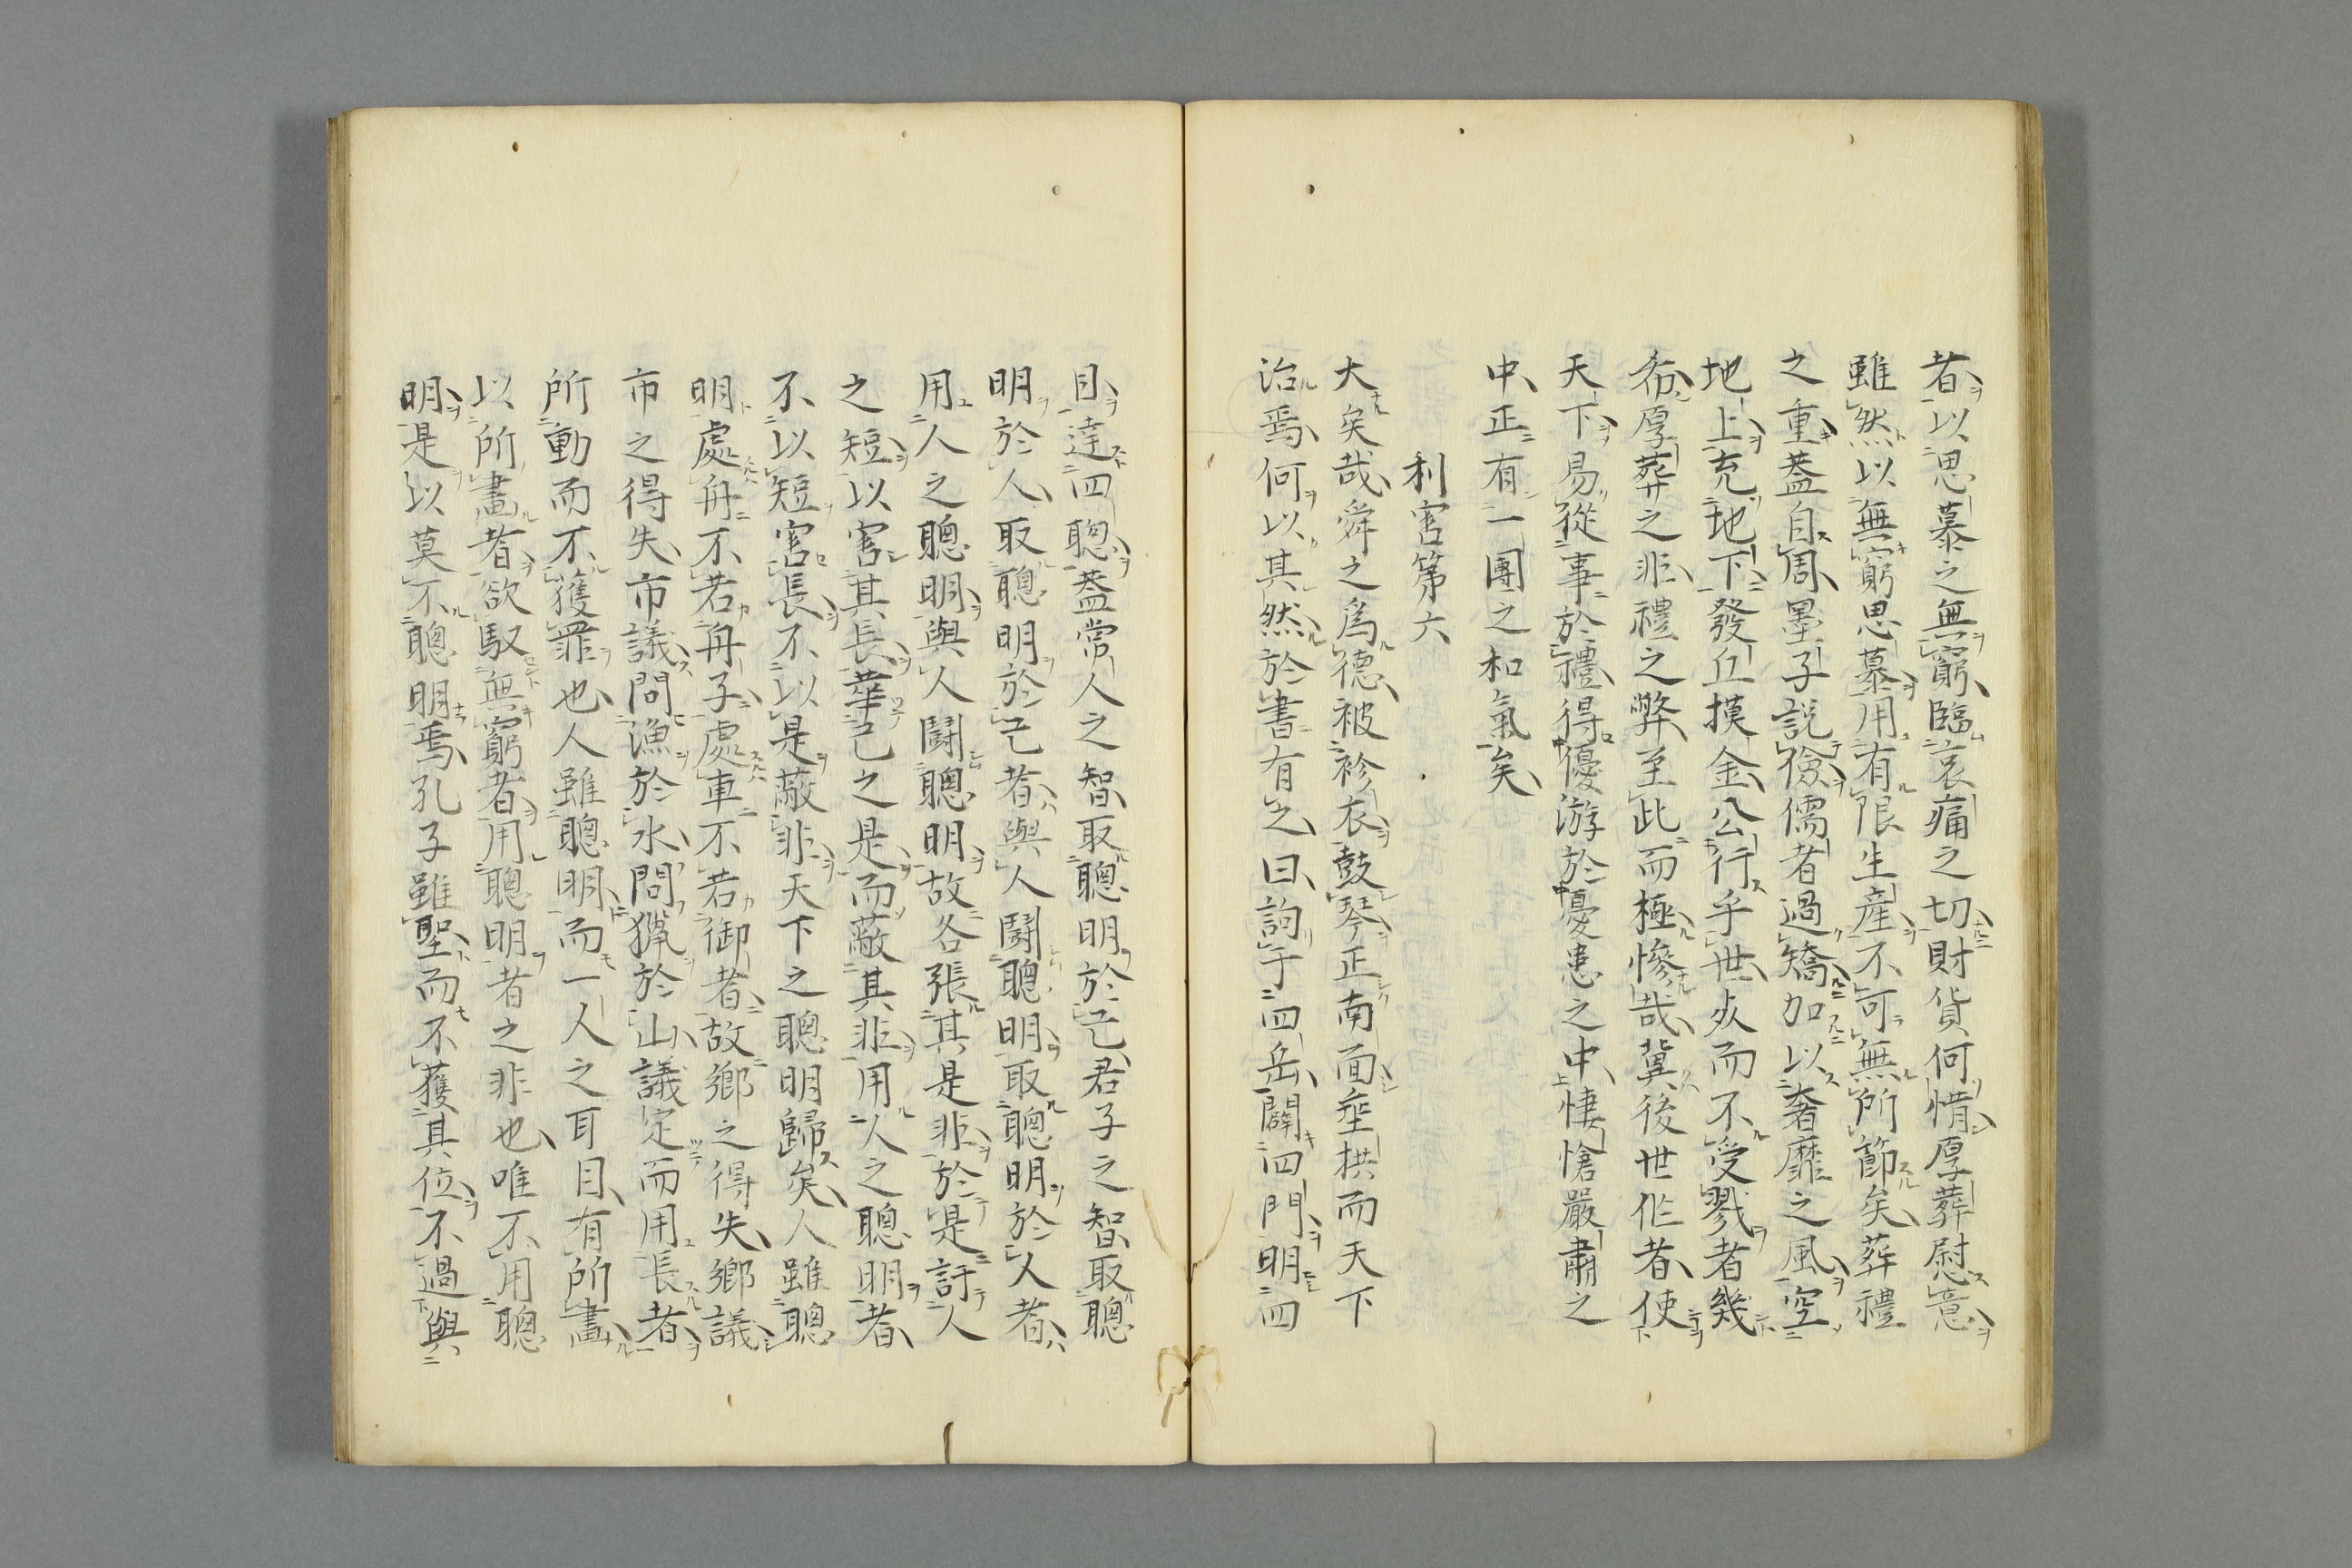 者以思慕之無窮臨哀痛之切財貨何惜厚葬慰意
雖然以無窮思慕用有限生産不可無所節矣葬禮
之重蓋自周墨子説儉儒者過矯加以奢靡之風空
地上充地下發丘摸金公行乎世矣而不受戮者幾
希厚葬之非禮之弊至此而極慘哉冀後世作者使
天下易從事於禮得優游於憂患之中悽愴嚴肅之
中正有一團之和氣矣
利害第六
大矣哉舜之爲德被袗衣鼓琴正南面垂拱而天下
治焉何以其然於書有之曰詢于四岳闢四門明四
目達四聰蓋常人之智取聰明於己君子之智取聰
明於人取聰明於己者與人鬪聰明取聰明於人者
用人之聰明與人鬪聰明故各張其是非於是訐人
之短以害其長華己之是而蔽其非用人之聰明者
不以短害長不以是蔽非天下之聰明歸矣人雖聰
明處舟不若舟子處車不若御者故郷之得失郷議
市之得失市議問漁於水問獵於山議定而用長者
所動而不獲罪也人雖聰明而一人之耳目有所畫
以所畫者欲馭無窮者用聰明者之非也唯不用聰
明是以莫不聰明焉孔子雖聖而不獲其位不過與